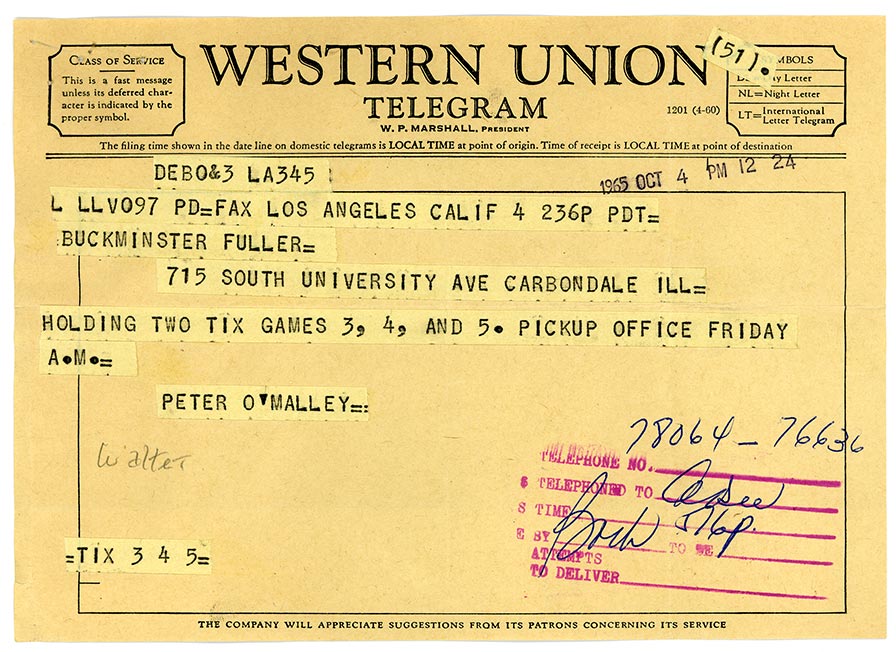 CLASS OF SERVICE
This is a fast message
unless its deferred char-
acter is indicated by the
proper symbol.
WESTERN UNION
TELEGRAM
W. P. MARSHALL, PRESIDENT
1201 (4-60)
(51).
SYMBOLS
Letter
NL=Night Letter
LT=International
Letter Telegram
The filing time shown in the date line on domestic telegrams is LOCAL TIME at point of origin. Time of receipt is LOCAL TIME at point of destination
DEBO&3 LA345
1965 OCT 4 PM 12 24
L LLV097 PD=FAX LOS ANGELES CALIF 4 236P PDT=
BUCKMINSTER FULLER=
715 SOUTH UNIVERSITY AVE CARBONDALE ILL=
HOLDING TWO TIX GAMES 3, 4, AND 5. PICKUP OFFICE FRIDAY
A.M.=
PETER O'MALLEY=
Walter
78064 - 76636
TELEPHONE NO.
TELEPHONED TO
S TIME 576p.
E BY TO BE
ATTEMPTS
TO DELIVER
=TIX 3 4 5=
THE COMPANY WILL APPRECIATE SUGGESTIONS FROM ITS PATRONS CONCERNING ITS SERVICE